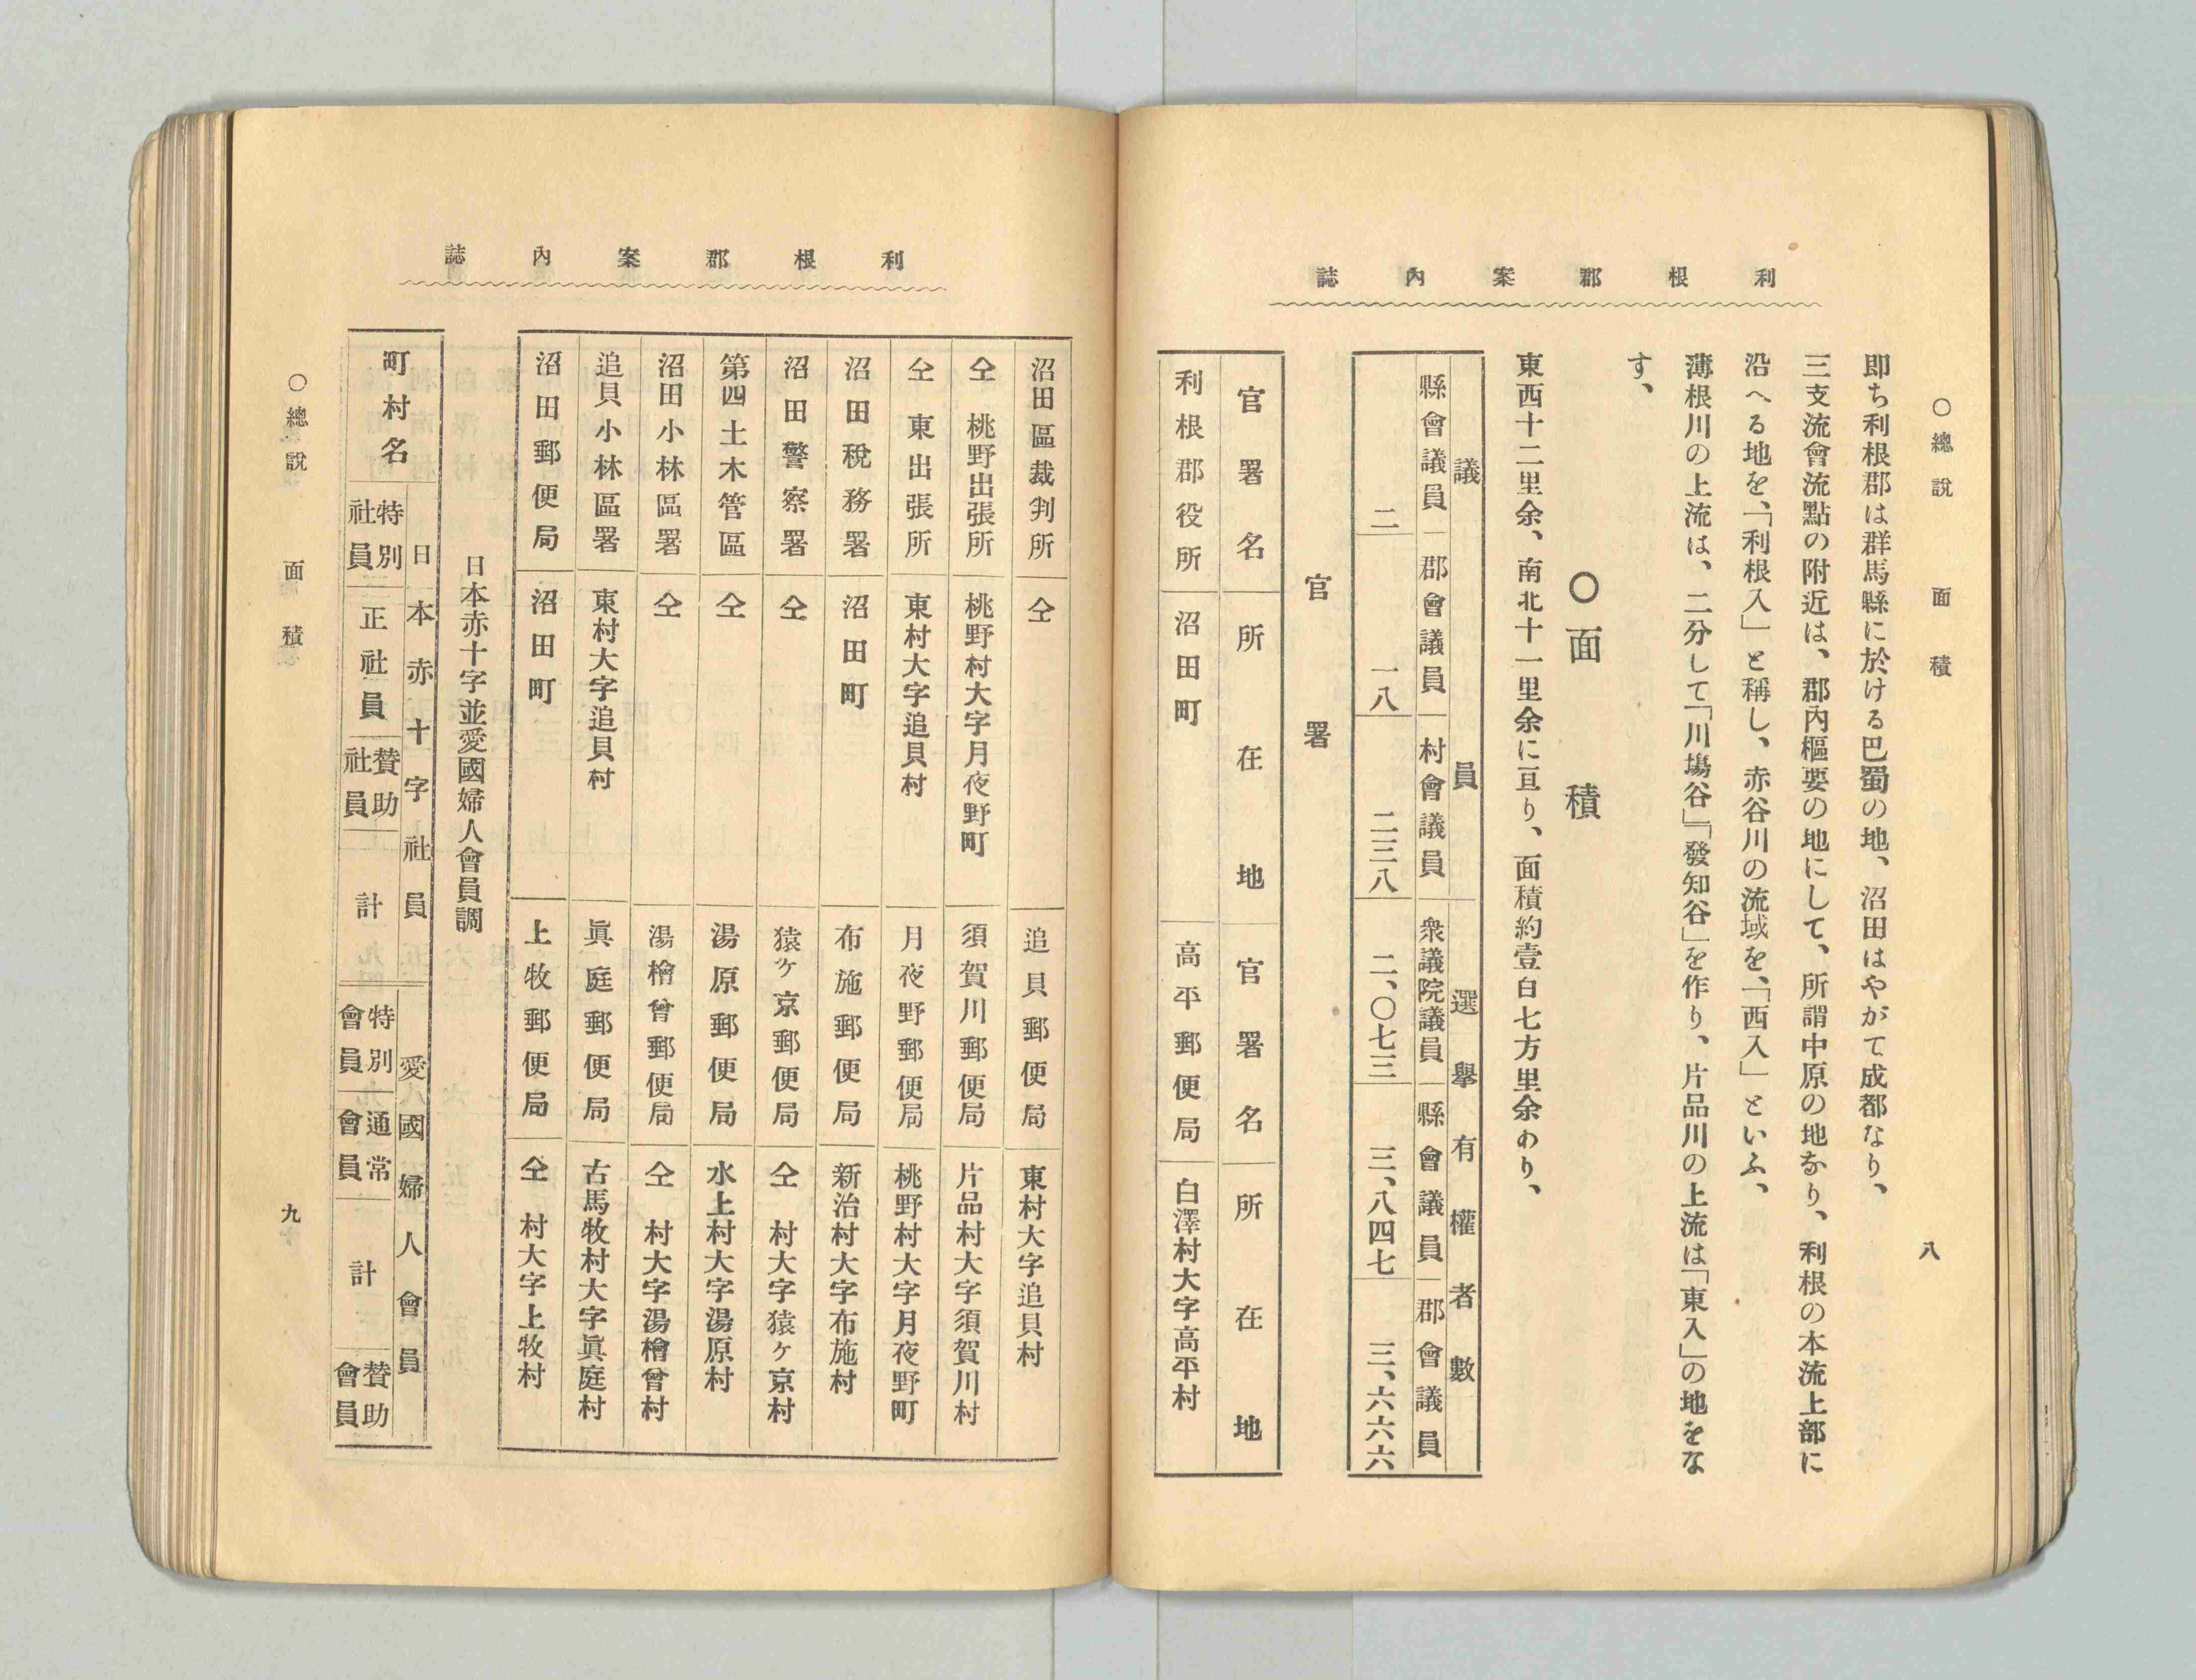 利根郡案內誌
○總說　面積　八
即ち利根郡は群馬縣に於ける巴蜀の地、沼田はやがて成都なり、
三支流會流點の附近は、郡內樞要の地にして、所謂中原の地なり、利根の本流上部に
沿へる地を、「利根入」と稱し、赤谷川の流域を、「西入」といふ、
薄根川の上流は、二分して「川場谷」「發知谷」を作り、片品川の上流は「東入」の地をな
す、
○面積
東西十二里余、南北十一里余に亘り、面積約壹白七方里余あり、
議員　選擧有權者數
縣會議員　郡會議員　村會議員　衆議院議員　縣會議員　郡會議員
二　一八　二三八　二、〇七三　三、八四七　三、六六六
官署
官署名　所在地　官署名　所在地
利根郡役所　沼田町　高平郵便局　白澤村大字高平村
利根郡案內誌
沼田區裁判所　仝　追貝郵便局　東村大字追貝村
仝桃野出張所　桃野村大字月夜野町　須賀川郵便局　片品村大字須賀川村
仝東出張所　東村大字追貝村　月夜野郵便局　桃野村大字月夜野町
沼田稅務署　沼田町　布施郵便局　新治村大字布施村
沼田警察署　仝　猿ケ京郵便局　仝村大字猿ケ京村
第四土木管區　仝　湯原郵便局　水上村大字湯原村
沼田小林區署　仝　湯檜曾郵便局　仝村大字湯檜曾村
追貝小林區署　東村大字追貝村　眞庭郵便局　古馬牧村大字眞庭村
沼田郵便局　沼田町　上牧郵便局　仝村大字上牧村
日本赤十字並愛國婦人會員調
町村名　日本赤十字社員　愛國婦人會員
特別社員　正社員　贊助社員　計　特別會員　通常會員　計　贊助會員
○總說　面積　九